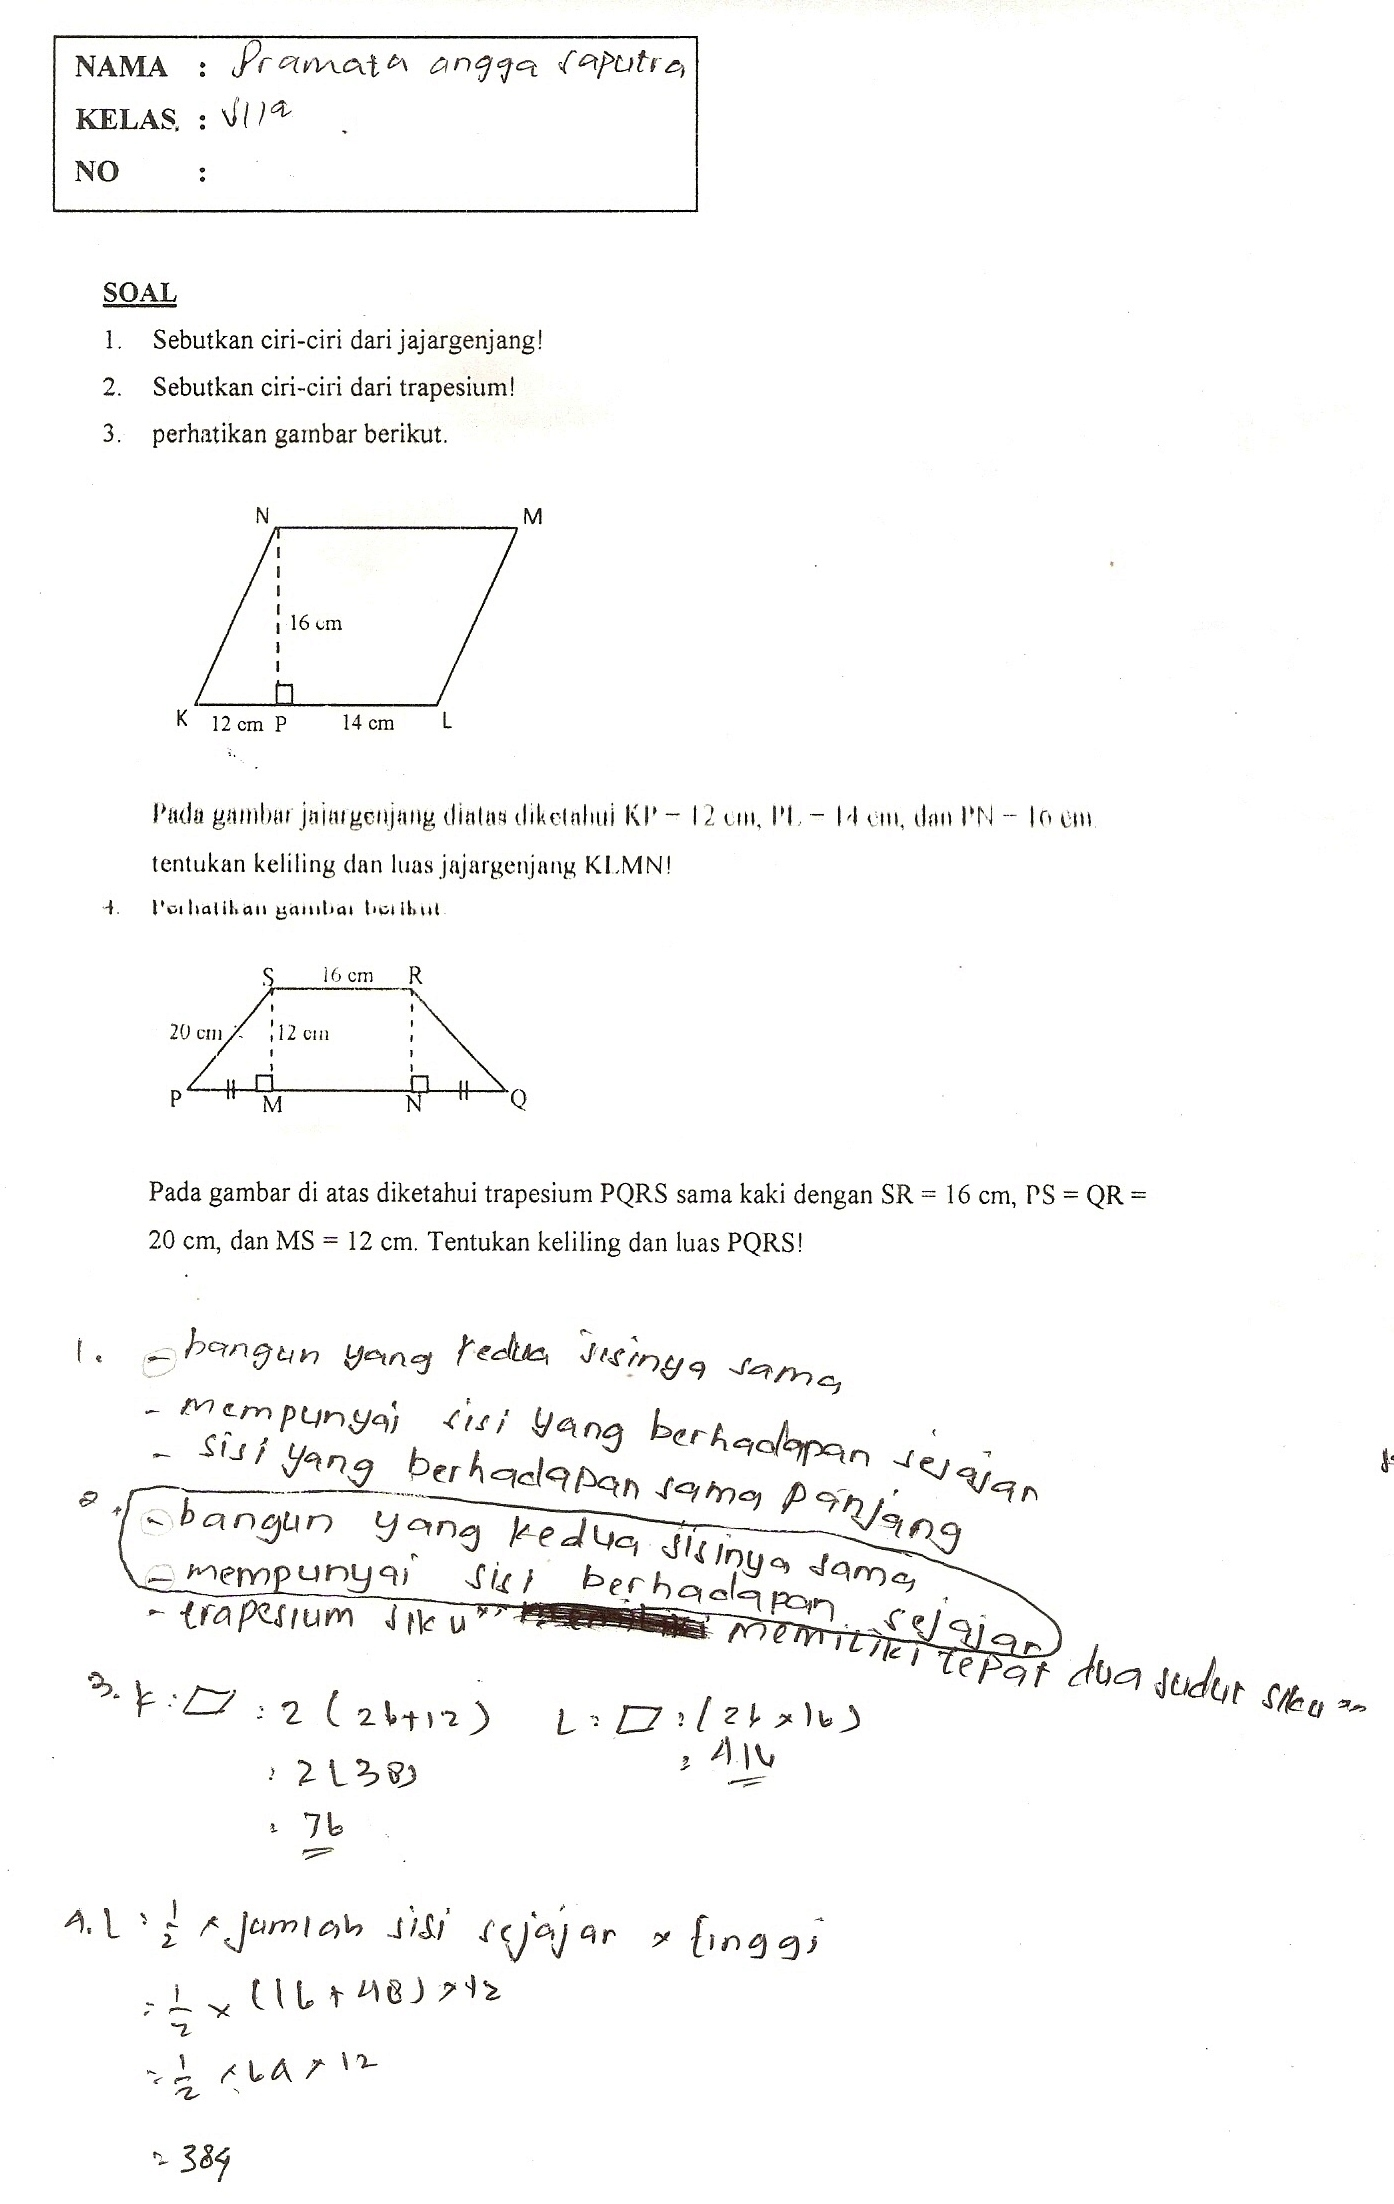 NAMA : Pramata angga saputra
KELAS : VIIa
NO :
SOAL
1. Sebutkan ciri-ciri dari jajargenjang!
2. Sebutkan ciri-ciri dari trapesium!
3. perhatikan gambar berikut.
N M
16 cm
K 12 cm P 14 cm L
Pada gambar jajargenjang diatas diketahui KP = 12 cm, PL = 14 cm, dan PN = 16 cm
tentukan keliling dan luas jajargenjang KLMN!
4. Perhatikan gambar berikut
S 16 cm R
20 cm 12 cm
P M N Q
Pada gambar di atas diketahui trapesium PQRS sama kaki dengan SR = 16 cm, PS = QR =
20 cm, dan MS = 12 cm. Tentukan keliling dan luas PQRS!
1. - bangun yang kedua sisinya sama
- mempunyai sisi yang berhadapan sejajar
- sisi yang berhadapan sama panjang
2. - bangun yang kedua sisinya sama
- mempunyai sisi berhadapan sejajar
- trapesium siku" memiliki tepat dua sudut siku"
3. K : ▱ : 2 (26+12) L : ▱ : (26 x 16)
: 2 (38) : 416
: 76
4. L : 1/2 x jumlah sisi sejajar x tinggi
= 1/2 x (16 + 48) x 12
= 1/2 x 64 x 12
= 384